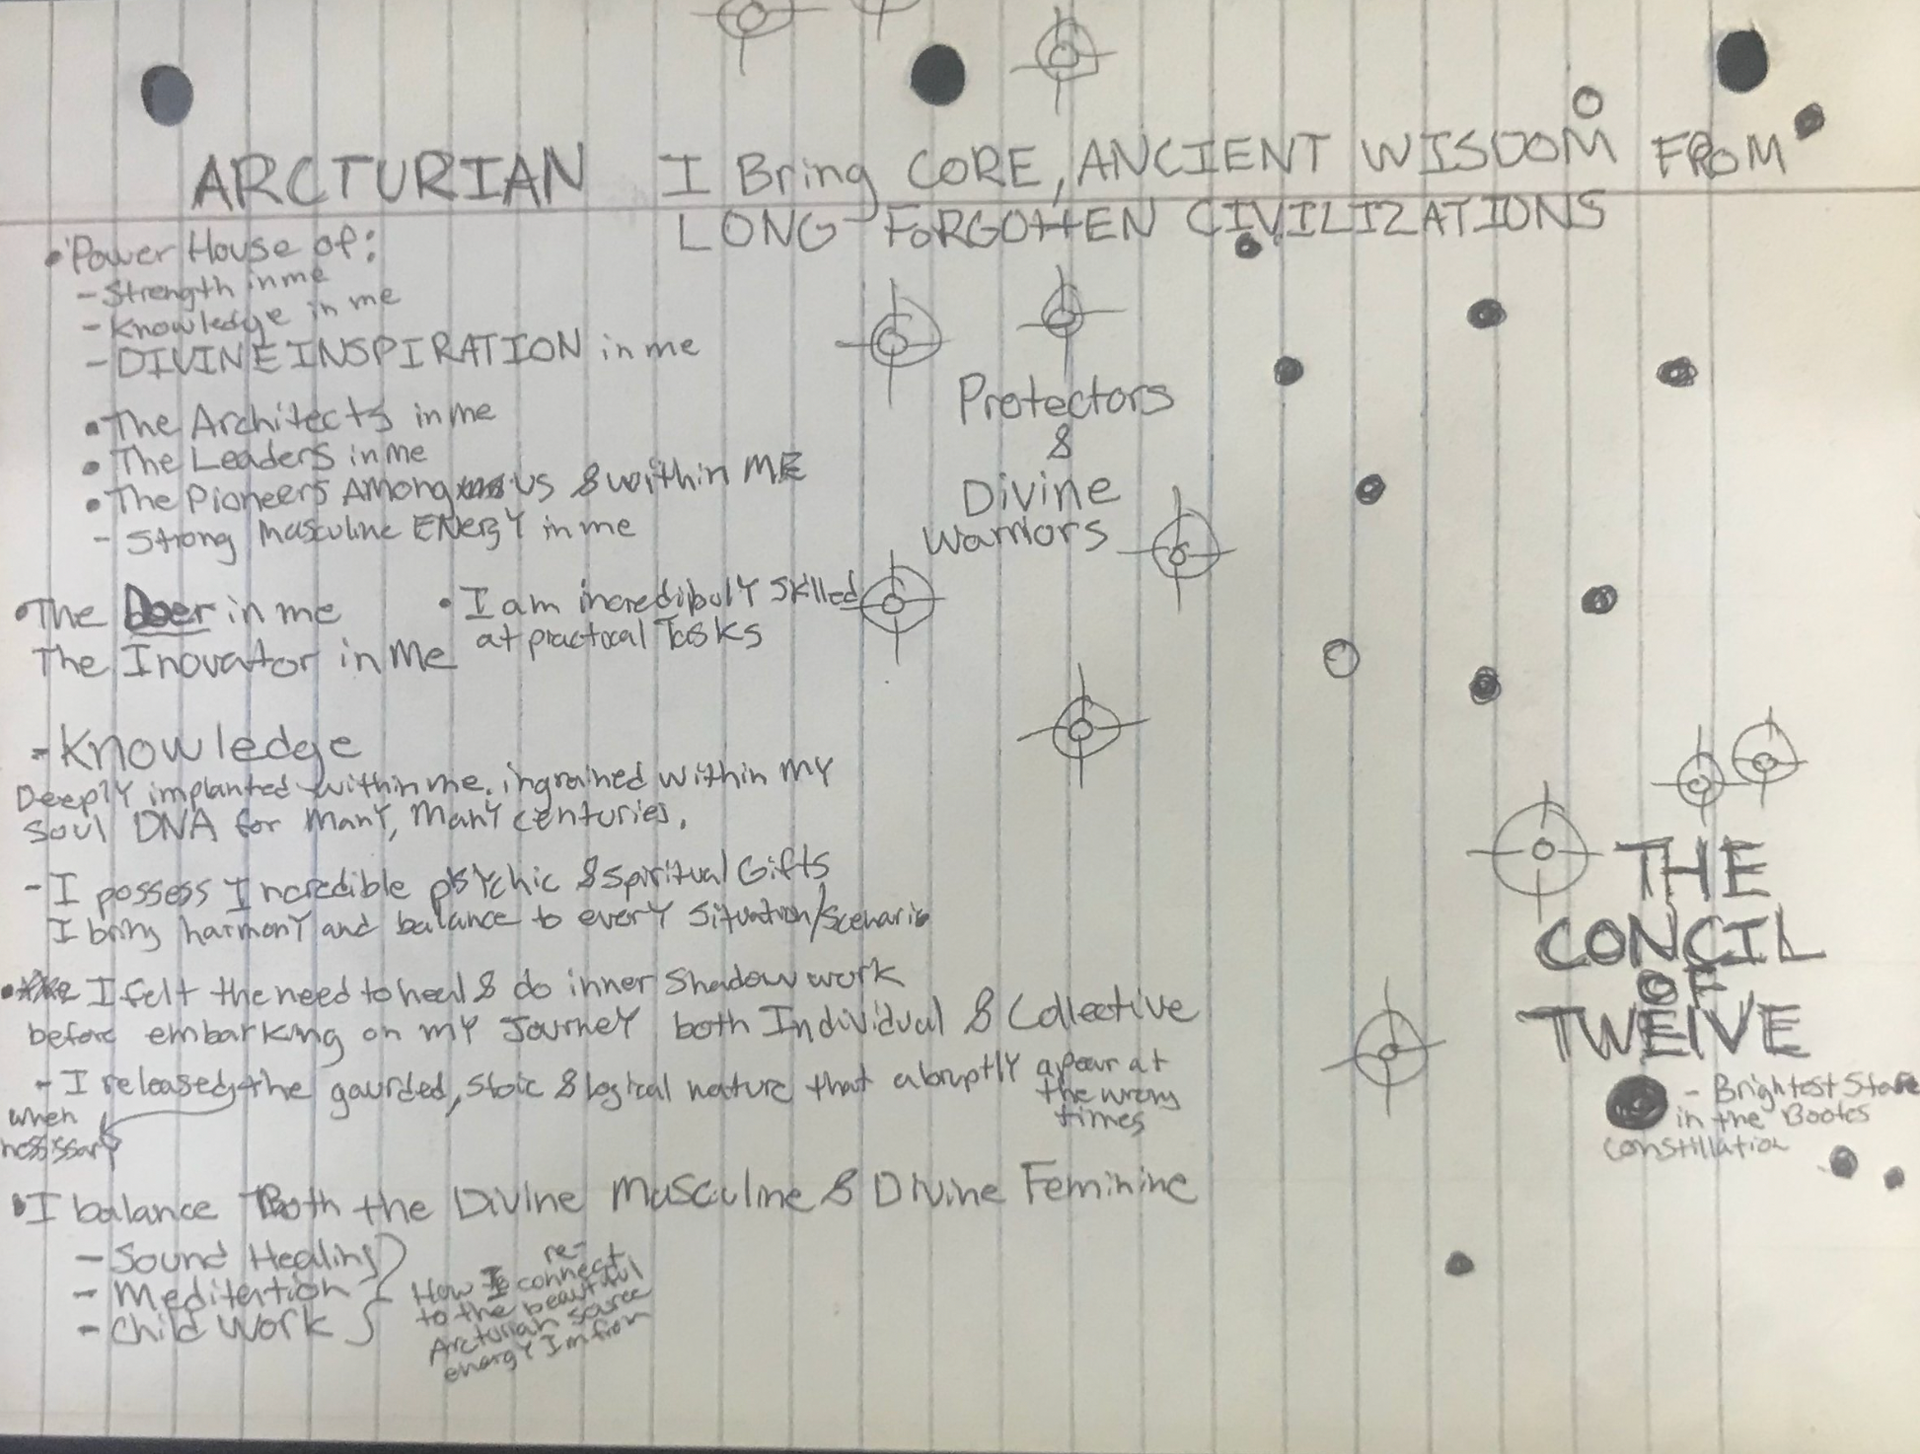 ARCTURIAN
I Bring CORE, ANCIENT WISDOM FROM
LONG FORGOTTEN CIVILIZATIONS
• Power House of:
- Strength in me
- Knowledge in me
- DIVINE INSPIRATION in me
• The Architects in me
• The Leaders in me
• The Pioneers Among us & within ME
- Strong Masculine ENERGY in me
Protectors
&
Divine
Warriors
• The Doer in me
The Inovator in Me
• I am incredibuly skilled
at practical Tasks
- Knowledge
Deeply implanted within me. ingrained within my
Soul DNA for many, many centuries.
- I possess Incredible psychic & spiritual Gifts
I bring harmony and balance to every situation/scenario
• I felt the need to heal & do inner Shadow work
before embarking on my Journey both Individual & Collective
- I released the gaurded, stoic & logical nature that abruptly apear at
the wrong
times
when
nessissary
• I balance Both the Divine Masculine & Divine Feminine
- Sound Healing
- Meditation
- Child Work
How I re-
connect
to the beautiful
Arcturian source
energy Im from
THE
CONCIL
OF
TWELVE
- Brightest Stare
in the Bootes
constillation